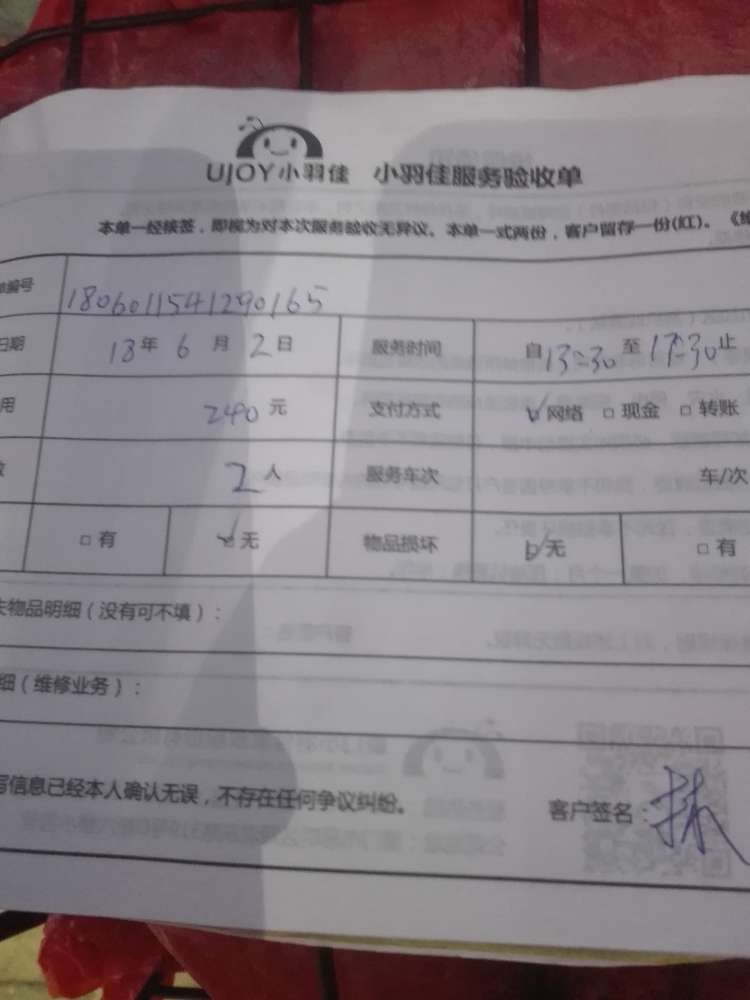 UJOY小羽佳 小羽佳服务验收单
本单一经核签，即视为对本次服务验收无异议。本单一式两份，客户留存一份(红)。《
编号 1806011541290165
日期 18年 6月 2日 服务时间 自13:30至17:30止
用 240元 支付方式 网络 现金 转账
2人 服务车次 车/次
有 无 物品损坏 无 有
失物品明细（没有可不填）：
细（维修业务）：
写信息已经本人确认无误，不存在任何争议纠纷。 客户签名：